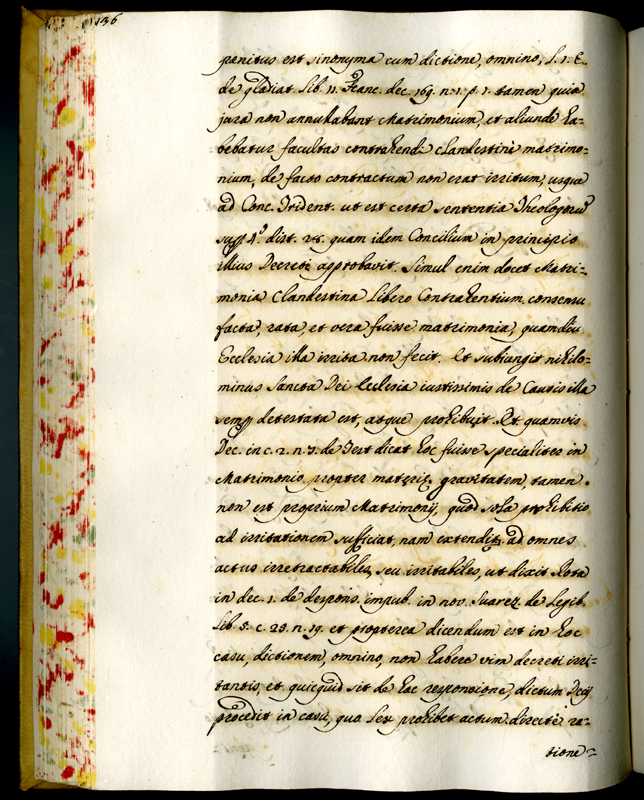 136
panitus est sinonyma cum dictione, omnino, l. 1. C.
de gladiat. lib. 11. Franc. dec. 169. n. 1. p. 1. tamen quia
jura non annullabant Matrimonium, et aliunde ha-
bebatur facultas contrahendi clandestinè matrimo-
nium, de facto contractum non erat irritum, usque
ad Conc. Trident. ut est certa sententia Theologorũ
supp 4.º dist. 28. quam idem Concilium in principio
illius Decreti approbavit. Simul enim docet Matri-
monia Clandestina libero Contrahentium consensu
facta, rata, et vera fuisse matrimonia, quamdiu
Ecclesia illa irrita non fecit. Et subiungit nihilo-
minus Sancta Dei Ecclesia iustissimis de Causis illa
semp detestata est, atque prohibuit. Et quamvis
Dec. in c. 2. n. 7. de Test dicat hoc fuisse specialiter in
Matrimonio propter gravitatem, tamen
non est proprium Matrimonij, quod sola prohibitio
ad irritationem sufficiat, nam extenditr ad omnes
actus irretractabiles, seu irritabiles, ut dixit Rota
in dec. 1. de despons. impub. in nov. Suarez de Legib.
lib. 5. c. 29. n. 19. et propterea dicendum est in hoc
casu, dictionem, omnino, non habere vim decreti irri-
tantis, et quicquid sit de hac responsione, dictum Decij
procedit in casu, quo lex prohibet actum directè ra-
tione